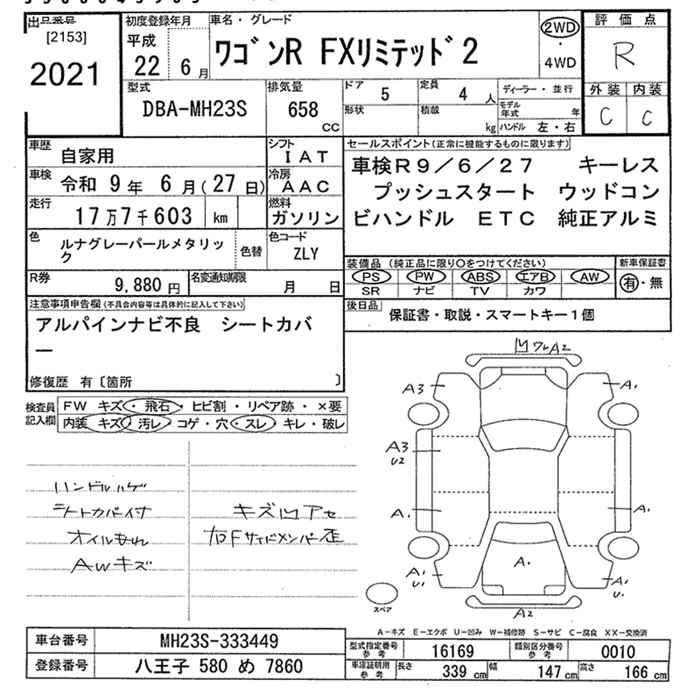 出品番号
[2153]
2021
初度登録年月
平成
22 6月
車名・グレード
ワゴンR FXリミテッド2
2WD
・
4WD
評価点
R
外装 内装
C C
型式
DBA-MH23S
排気量
658
CC
ドア 5
定員 4 人
形状
積載 kg
ディーラー・並行
モデル年式 年
ハンドル 左・右
車歴 自家用
シフト IAT
車検 令和 9年 6月(27日)
冷房 AAC
走行 17万7千603 km
燃料 ガソリン
色 ルナグレーパールメタリック
色替
色コード ZLY
R券 9,880円
名変通知期限 月 日
セールスポイント(正常に機能するものに限ります)
車検R9/6/27 キーレス
プッシュスタート ウッドコン
ビハンドル ETC 純正アルミ
装備品(純正品に限り○をつけてください)
新車保証書
PS PW ABS エアB AW
SR ナビ TV カワ
有・無
後日品
保証書・取説・スマートキー1個
注意事項申告欄(不具合内容等は具体的に記入して下さい)
アルパインナビ不良 シートカバ
ー
修復歴 有〔箇所 〕
検査員
記入欄
FW キズ・飛石・ヒビ割・リペア跡・×要
内装 キズ・汚レ・コゲ・穴・スレ・キレ・破レ
ハンドルハゲ
シートカバー付
オイルもれ
AWキズ
キズ凹アセ
右Fサイドメンバー歪
凹ワレA2
A3
A.
A3
U2
A.
A.
A.
A.
U1
A.
U.
A2
スペア
A-キズ E-エクボ U-凹み W-補修跡 S-サビ C-腐食 XX-交換済
車台番号 MH23S-333449
登録番号 八王子 580 め 7860
型式指定番号
参考
16169
類別区分番号
参考
0010
車庫証明用
参考
長さ 339 cm
幅 147 cm
高さ 166 cm